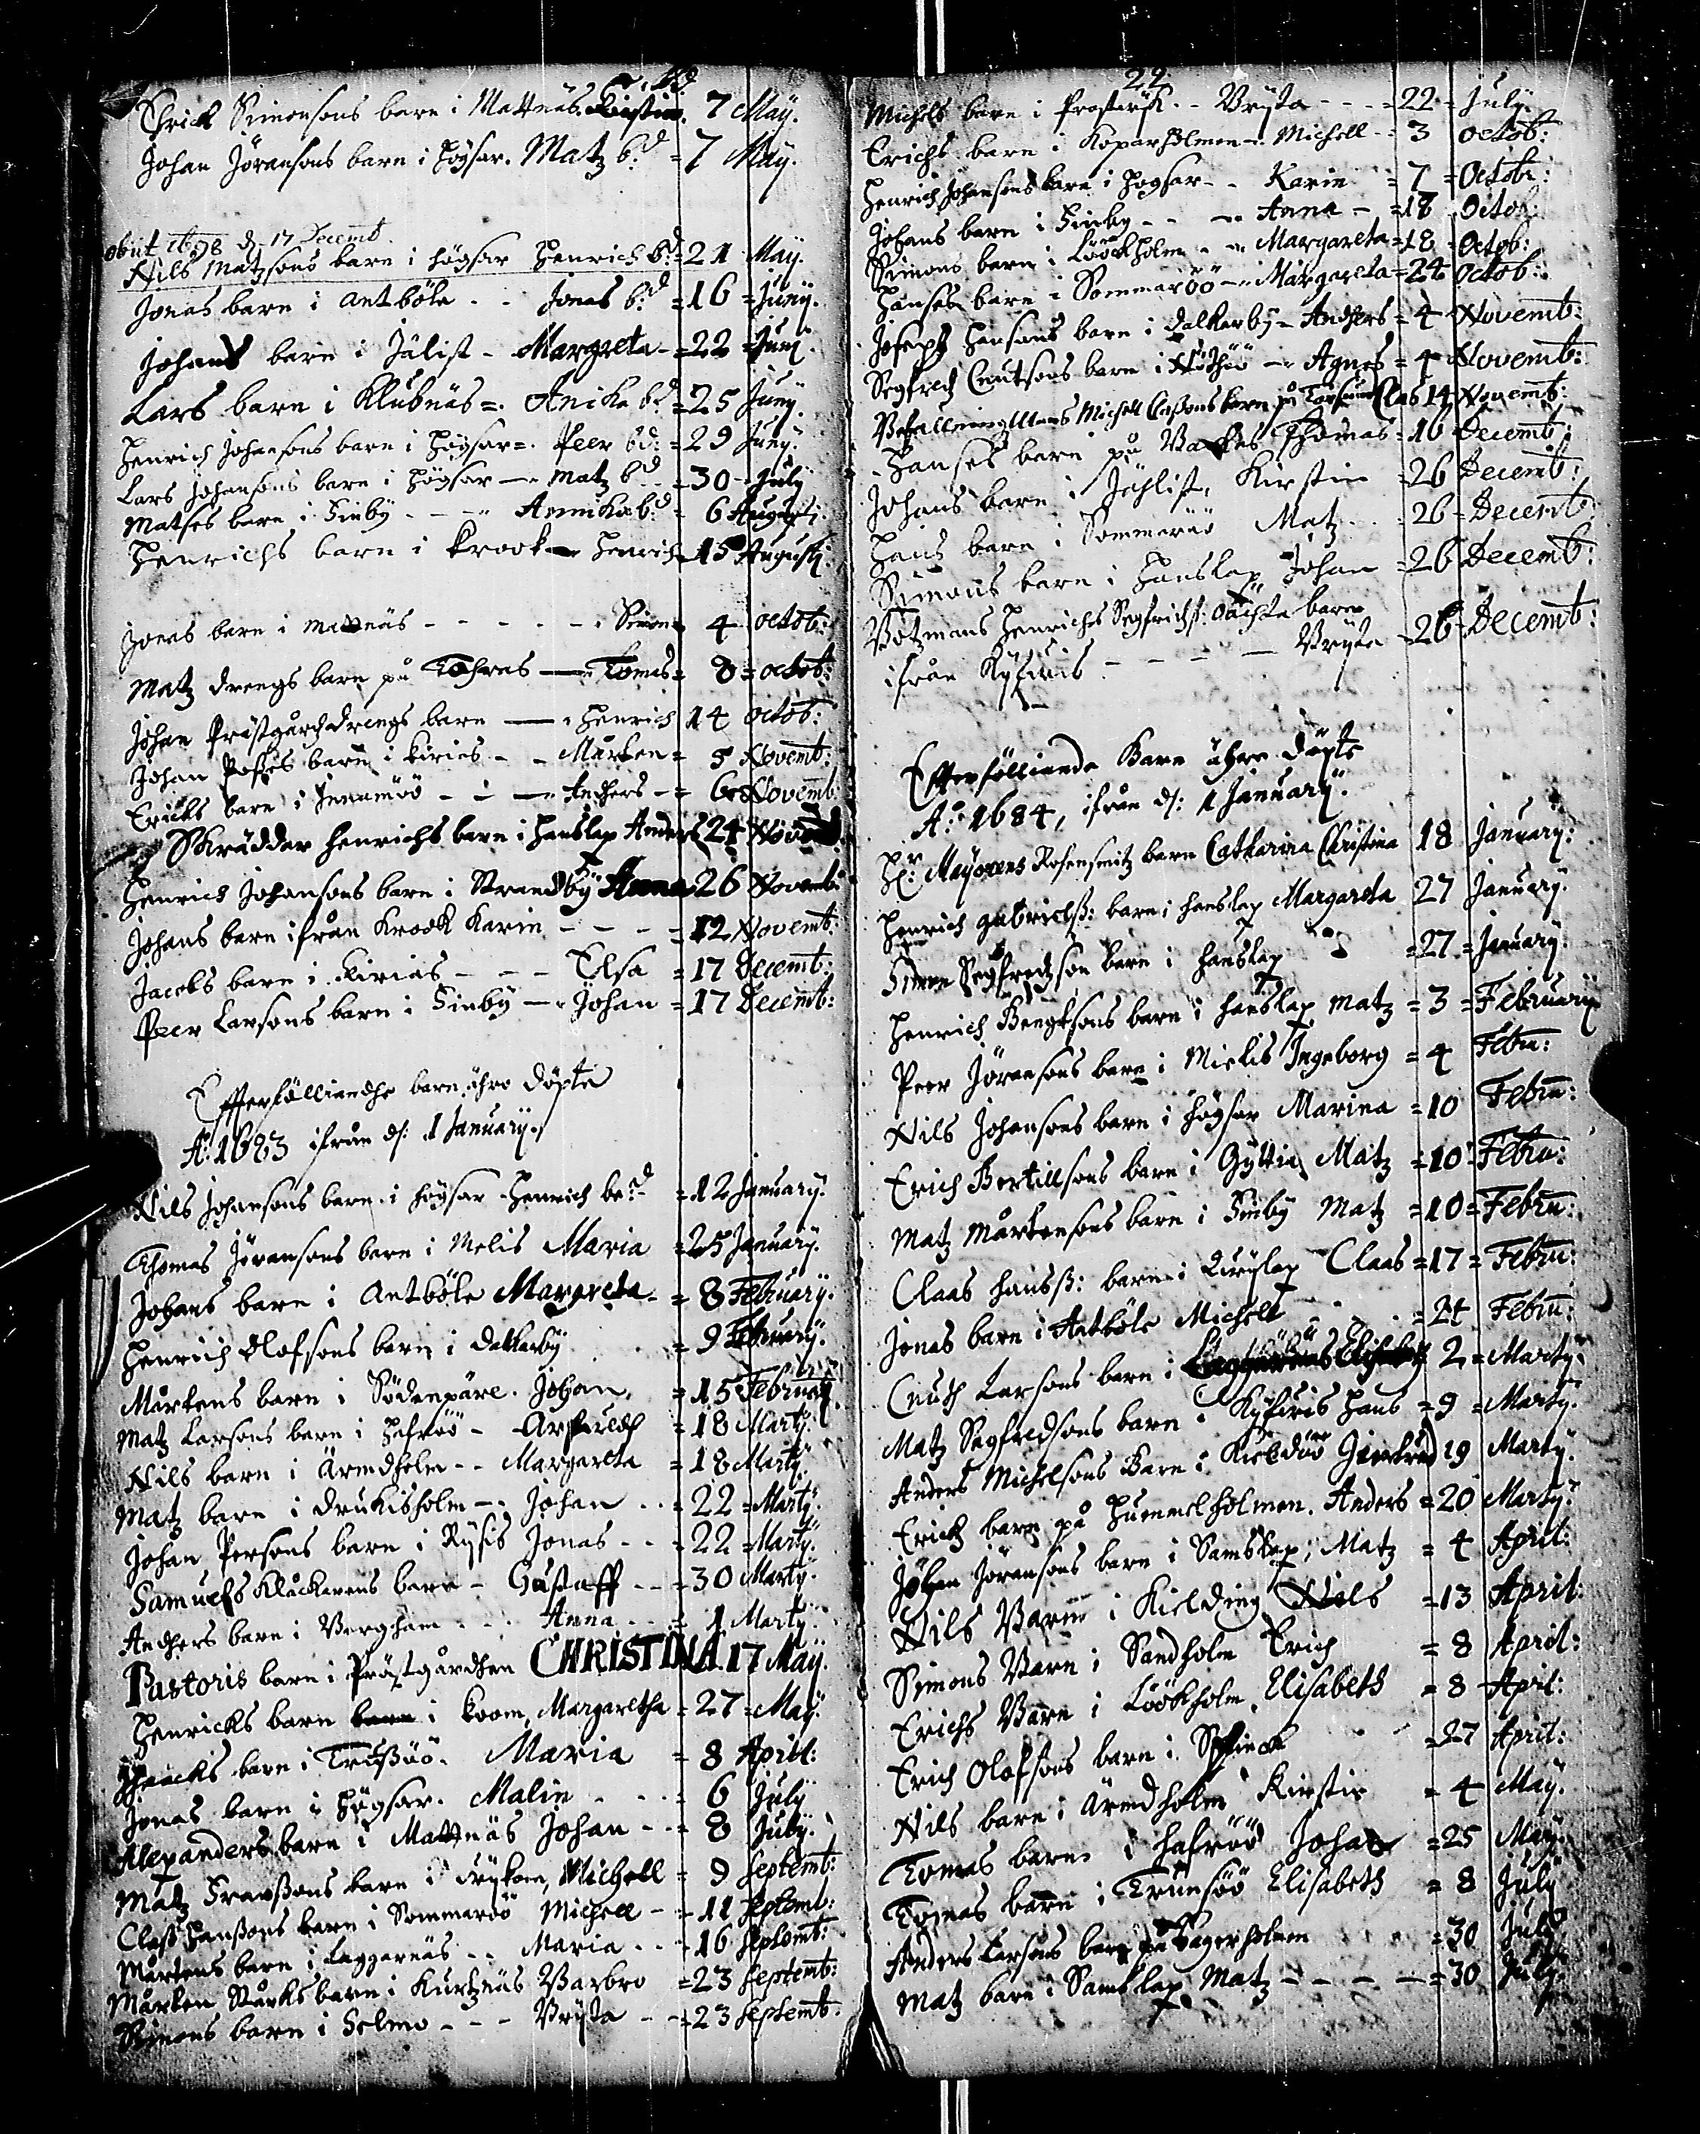 Erich Simonsons barn i Mattnäs. Kirstin. 7 May.
Johan Jöransons barn i Högsar. Matz b:d = 7 May.
obiit 1698 d. 17 Decemb.
Nils Matzsons barn i högsar Henrich b:d = 21 May.
Jonas barn i antböle - - Jonas b:d = 16 = Juny.
Johans barn i Jälist - Margreta - = 22 = Juny
Lars barn i Klubnäs = . Anicka b:d = 25 Juny.
Henrich Johansons barn i Högsar = . Peer bd: = 29 Juny.
Lars Johansons barn i Högsar - Matz b:d - = 30 - July
Matses barn i Finby - - - Annika b:d = 6 Augusti
Henrichs barn i Krook - Henrich 15 Augusti:
Jonas barn i mattnäs - - - - - Simon 4 octob:
Matz drengs barn på Tofnas - Tomas = 8 = octob:
Johan Prästgårdz drengs barn - Henrich 14 octob:
Johan barn i Kirias - - Mårten = 5 Novemb:
Ericks barn i Jermöö - - - Anders - = 6 = Novemb
Skräddar Henrichs barn i Hanslax Anders 24 Novemb
Henrich Johansons barn i Strandby Anna 26 Novemb:
Johans barn ifrån Krook Karin - - - - = 12 Novemb:
Jacobs barn i Kirias - - - Elsa = 17 Decemb:
Peer Larsons barn i Finby - Johan = 17 Decemb:
Effterfölliandhe barn ähro döpte
A:o 1683 ifrån d: 1 January.
Nils Johansons barn i högsar Henrich be:d = 12 January.
Thomas Jöransons barn i Melis Maria = 25 January.
Johans barn i Antböle Margreta - = 8 February.
Henrich Olofsons barn i dalkarby = 9 February.
Mårtens barn i Södenpäre. Johan = 15 February.
Matz Larsons barn i Hafröö - = 18 Marty.
Nils barn i Ärnudholm - - Margareta = 18 Marty.
Matz barn i drukisholm - . Johan - - = 22 = Marty.
Johan Persons barn i Rysis Jonas - - = 22 = Marty.
Samuels Klåckarens barn - Gustaff - - = 30 Marty.
Andhers barn i Vorgham - - Anna - - = 1 Marty.
Pastoris barn i Prästgårdhen CHRISTINA. 17 May.
Henricks barn barn i koom, Margaretha = 27 = May.
barn i Trutzöö. Maria = 8 April:
Jonas barn i Högsar. Malin - - - = 6 July
Alexanders barn i Mattnäs Johan - - = 8 July.
Matz Franssons barn i Frykom, Michell = 9 Septemb:
Clas Hanssons barn i Sommaröö Michell - = 11 Septemb:
Mårtens barn i Laggarnäs - - Maria - - = 16 Septemb:
Mårten Starks barn i Kurtznäs Barbro = 23 Septemb:
Simons barn i Holmo - - - Brÿta - - = 23 Septemb:
22
Michels barn i - - Brÿta - - - = 22 = July.
Erichs barn i Koparholmen - Michell - = 3 octob:
Henrich Johansons barn i Högsar - - Karin = 7 = Octob:
Johans barn i Finby - - - Anna - = 18 Octob:
Simons barn i Löökholm - - Margareta = 18 = Octob:
Hanses barn i Sommaröö - Margareta = 24 Octob:
Joseph Hansons barn i Dalkarby - Andhers = 4 Novemb:
Segfred Cnutsons barn i Nöthöö - Agnes = 4 Novemb:
Befallningsmans Michell Clasons barn på Torsum Clas 14 Novemb:
Hanses barn på Varkas Thomas = 10 Decemb:
Johans barn i Jählist, Kirstin = 26 Decemb:
Hans barn i Sommaröö Matz = 26 - Decemb:
Simons barn i Hanslax Johan = 26 Decemb:
Båtzmans Henrichs Segfrids: oächta barn
ifrån Kyfvis - - - - - Brÿta = 26 Decemb:
Effterfölliande Barn ähre döpte
A:o 1684, ifrån d: 1 January.
H:r Mayorens Rosensmitz barn Catharina Christina 18 January:
Henrich gabrielß: barn i hanslax Margareta 27 January.
Simon Segfredsson barn i hanslax = 27 = January.
Henrich Bengtsons barn i hanslax Matz = 3 = February
Peer Jöransons barn i Mielis Ingeborg = 4 Febru:
Nils Johansons barn i högsar Marina = 10 Febru:
Erich Bertillsons barn i Gyttia Matz = 10 = Febru:
Matz Mårtensons barn i Finby Matz = 10 = Febru:
Claas hansß: barn i Qwylax Claas = 17 = Febru:
Jonas barn i Antböle Michell = 24 Febru:
Cnuth Larsons barn i Elisabeth 2 = Marty.
Matz Segfredsons barn i Kyfvis Hans = 9 = Marty.
Anders Michelsons Barn i Kieldöö Giertrud 19 Marty.
Erich barn på Hummelholmen. Anders = 20 Marty.
Johan Jöransons barn i Samslax, Matz = 4 April:
Nils Barn i Kielding Nils = 13 April:
Simons Barn i Sandholm Erich = 8 April:
Erichs Barn i Löökholm, Elisabeth = 8 April:
Erich Olofsons barn i = 27 April:
Nils barn i Ärnudholm Kirstin = 4 May.
Tomas barn i hafröö Johan = 25 May.
Tomas barn i Trunsöö Elisabeth = 8 July
Anders Larsons barn på Fagerholmen = 30 July
Matz barn i Samslax Matz - - - - = 30 July.